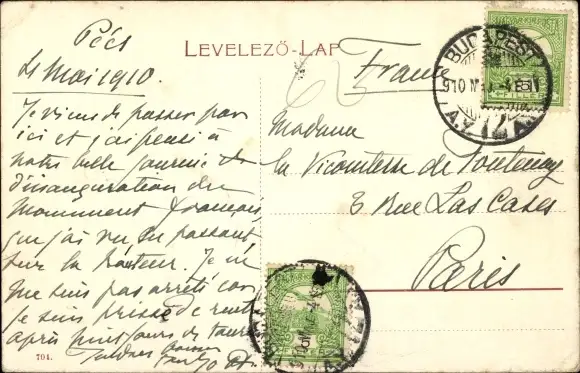 Pécs
4 Mai 1910.
LEVELEZŐ-LAP
France
BUDAPEST
910
Je viens de passer par
ici et j'ai pensé à
notre belle journée
d'inauguration du
Monument français,
que j'ai vu en passant
sur la hauteur. Je ne
me suis pas arrêté car
je suis pressé de
après jours de
Madame
la Vicomtesse de Fontenay
3 Rue Las Cases
Paris
5
5
704.